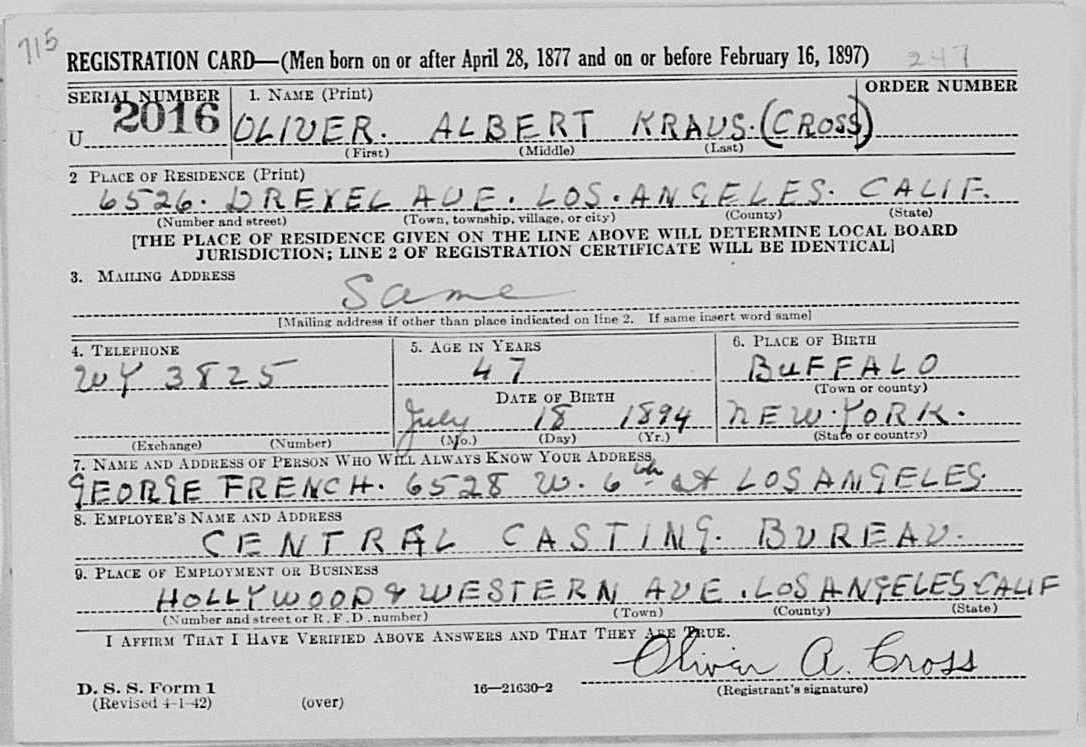 715
REGISTRATION CARD—(Men born on or after April 28, 1877 and on or before February 16, 1897) 247
SERIAL NUMBER 1. NAME (Print) ORDER NUMBER
U 2016 OLIVER. ALBERT KRAUS. (CROSS)
(First) (Middle) (Last)
2 PLACE OF RESIDENCE (Print)
6526. DREXEL AVE. LOS. ANGELES. CALIF.
(Number and street) (Town, township, village, or city) (County) (State)
[THE PLACE OF RESIDENCE GIVEN ON THE LINE ABOVE WILL DETERMINE LOCAL BOARD
JURISDICTION; LINE 2 OF REGISTRATION CERTIFICATE WILL BE IDENTICAL]
3. MAILING ADDRESS
Same
[Mailing address if other than place indicated on line 2. If same insert word same]
4. TELEPHONE 5. AGE IN YEARS 6. PLACE OF BIRTH
WY 3825 47 BUFFALO
DATE OF BIRTH (Town or county)
July 18 1894 NEW. YORK.
(Exchange) (Number) (Mo.) (Day) (Yr.) (State or country)
7. NAME AND ADDRESS OF PERSON WHO WILL ALWAYS KNOW YOUR ADDRESS
GEORGE FRENCH. 6528 W. 6th St LOS ANGELES.
8. EMPLOYER'S NAME AND ADDRESS
CENTRAL CASTING. BUREAU.
9. PLACE OF EMPLOYMENT OR BUSINESS
HOLLYWOOD & WESTERN AVE. LOS ANGELES. CALIF
(Number and street or R. F. D. number) (Town) (County) (State)
I AFFIRM THAT I HAVE VERIFIED ABOVE ANSWERS AND THAT THEY ARE TRUE.
Oliver A. Cross
D. S. S. Form 1 16—21630-2 (Registrant's signature)
(Revised 4-1-42) (over)